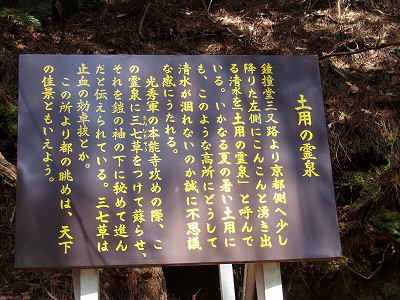 土用の霊泉
鐘撞堂三又路より京都側へ少し
降りた左側にこんこんと湧き出
る清水を「土用の霊泉」と呼んで
いる。いかなる夏の暑い土用に
も、このような高所にどうして
清水が涸れないのか誠に不思議
な感にうたれる。
光秀軍の本能寺攻めの際、こ
の霊泉に三七草をつけて蘇らせ、
それを鎧の袖の下に秘めて進ん
だと伝えられている。三七草は
止血の効卓抜とか。
この所より都の眺めは、天下
の佳景ともいえよう。